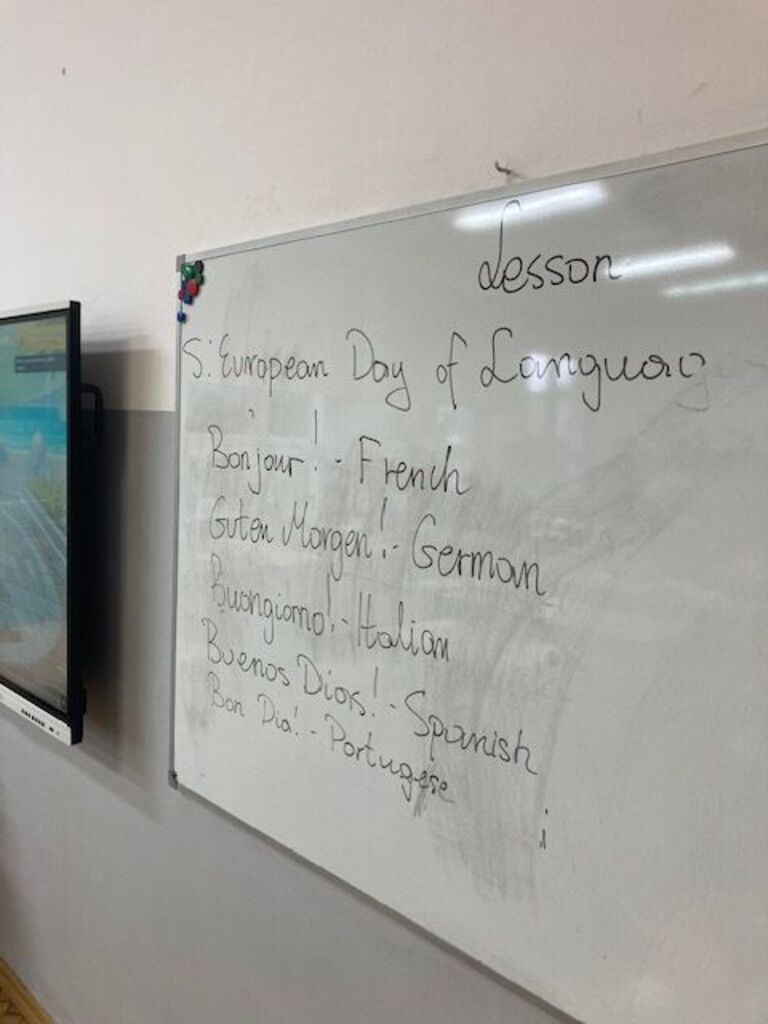 Lesson
S: European Day of Languag
Bonjour! - French
Guten Morgen! - German
Buongiorno! - Italian
Buenos Dias! - Spanish
Bon Dia! - Portugese
i